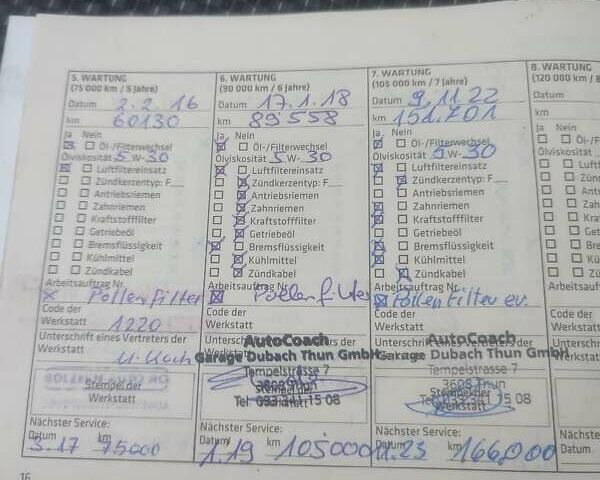 5. WARTUNG
(75 000 km / 5 Jahre)
Datum 2.2.16
km 60130
Ja Nein
Öl-/Filterwechsel
Ölviskosität 5 W-30
Luftfiltereinsatz
Zündkerzentyp: F
Antriebsriemen
Zahnriemen
Kraftstofffilter
Getriebeöl
Bremsflüssigkeit
Kühlmittel
Zündkabel
Arbeitsauftrag Nr.
Pollenfilter
Code der
Werkstatt 1220
Unterschrift eines Vertreters der
Werkstatt
Stempel der
Werkstatt
Nächster Service:
Datum km
3.17 75000
6. WARTUNG
(90 000 km / 6 Jahre)
Datum 17.1.18
km 89558
Ja Nein
Öl-/Filterwechsel
Ölviskosität 5 W-30
Luftfiltereinsatz
Zündkerzentyp: F
Antriebsriemen
Zahnriemen
Kraftstofffilter
Getriebeöl
Bremsflüssigkeit
Kühlmittel
Zündkabel
Arbeitsauftrag Nr.
Pollenfilter
Code der
Werkstatt
AutoCoach
Garage Dubach Thun GmbH
Tempelstrasse 7
3608 Thun
Tel 033 341 15 08
Nächster Service:
Datum km
1.19 105000
7. WARTUNG
(105 000 km / 7 Jahre)
Datum 9.11.22
km 151.701
Ja Nein
Öl-/Filterwechsel
Ölviskosität 5 W-30
Luftfiltereinsatz
Zündkerzentyp: F
Antriebsriemen
Zahnriemen
Kraftstofffilter
Getriebeöl
Bremsflüssigkeit
Kühlmittel
Zündkabel
Arbeitsauftrag Nr.
Pollenfilter ev.
Code der
Werkstatt
AutoCoach
Garage Dubach Thun GmbH
Tempelstrasse 7
3608 Thun
Tel 033 341 15 08
Stempel der
Werkstatt
Nächster Service:
Datum km
11.23 166000
8. WARTUNG
(120 000 km / 8
Datum
km
Ja Nein
16